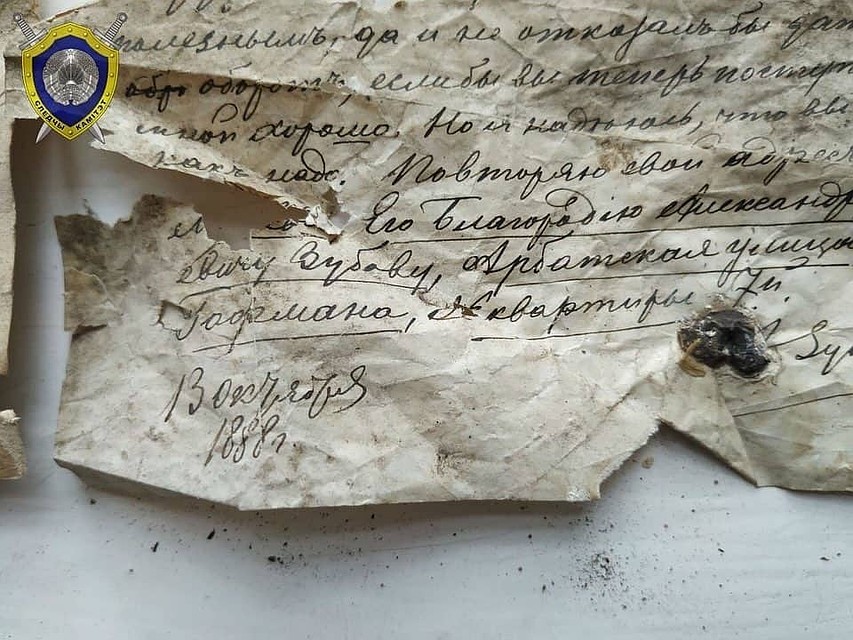 СЛЕДЧЫ КАМІТЭТ
полезнымъ, да и не отказалъ бы
оборотъ, еслибы вы теперь
хорошо. Но я надѣюсь, что вы
какъ надо. Повторяю свой адресъ
Его Благородію Александр
евичу Зубову, Арбатская улица
Гофмана, № квартиры 7й.
13 октября
1888 г.